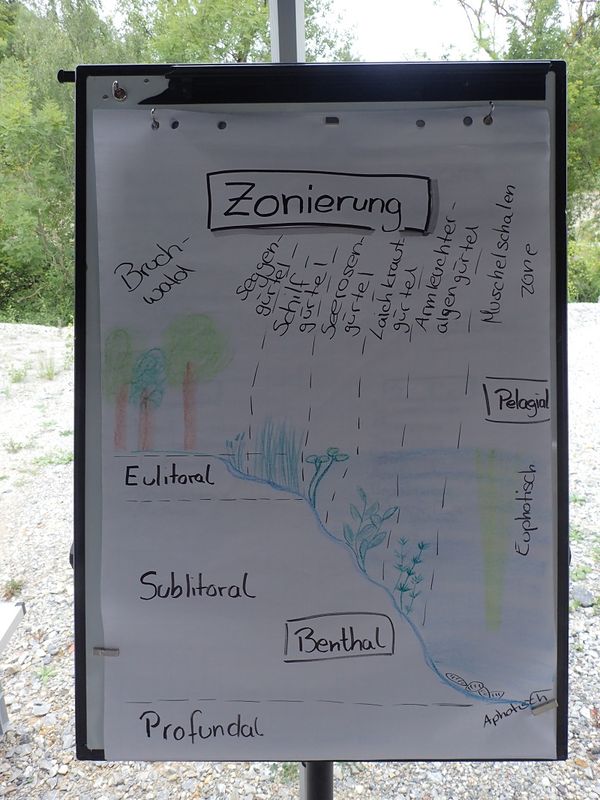 Zonierung
Bruch-
wald
Seggen-
gürtel
Schilf
gürtel
Seerosen-
gürtel
Laichkraut
gürtel
Armleuchter-
algengürtel
Muschelschalen
zone
Pelagial
Eulitoral
Euphotisch
Sublitoral
Benthal
Aphotisch
Profundal